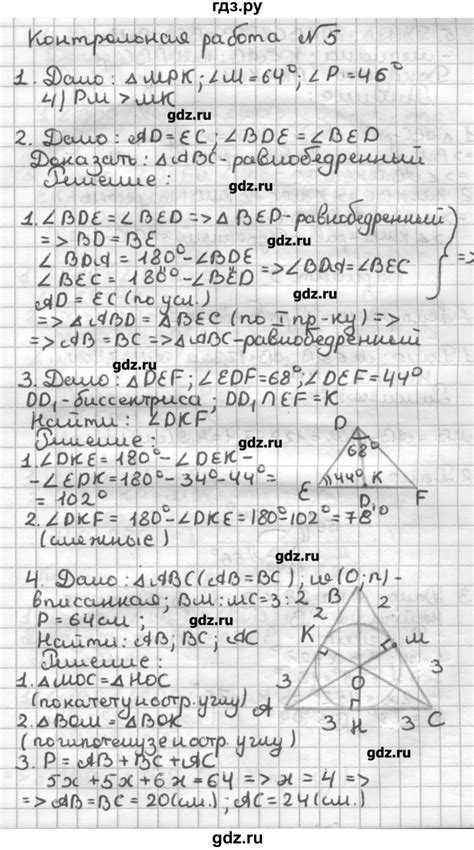 гдз.ру
Контрольная работа №5
1. Дано: △MPK; ∠M=64°; ∠P=46°
4) PM > MK
2. Дано: AD=EC; ∠BDE=∠BED
Доказать: △ABC-равнобедренный
Решение:
gdz.ru
gdz.ru
1. ∠BDE=∠BED => △BED-равнобедренный
=> BD=BE
∠BDA=180°-∠BDE
∠BEC=180°-∠BED => ∠BDA=∠BEC
=>
AD=EC (по усл.)
gdz.ru
=> △ABD=△BEC (по I пр-ку) =>
=> AB=BC => △ABC-равнобедренный
gdz.ru
gdz.ru
3. Дано: △DEF; ∠EDF=68°; ∠DEF=44°
DD₁-биссектриса; DD₁∩EF=K
Найти: ∠DKF
Решение:
D
68°
1. ∠DKE=180°-∠DEK-
-∠EDK=180°-34°-44°=
=102°
E
44°
K
D₁
F
2. ∠DKF=180°-∠DKE=180°-102°=78°
(смежные)
gdz.ru
gdz.ru
4. Дано: △ABC (AB=BC); ω(O;r)-
вписанная; BM:MC=3:2
P=64см;
Найти: AB; BC; AC
Решение:
gdz.ru
B
2
2
K
M
1. △MOC=△HOC
(по катету и остр. углу)
3
3
O
A
3
H
3
C
2. △BOM=△BOK
(по гипотенузе и остр. углу)
gdz.ru
3. P=AB+BC+AC
5x+5x+6x=64 => x=4 =>
=> AB=BC=20(см.); AC=24(см.)
gdz.ru
gdz.ru